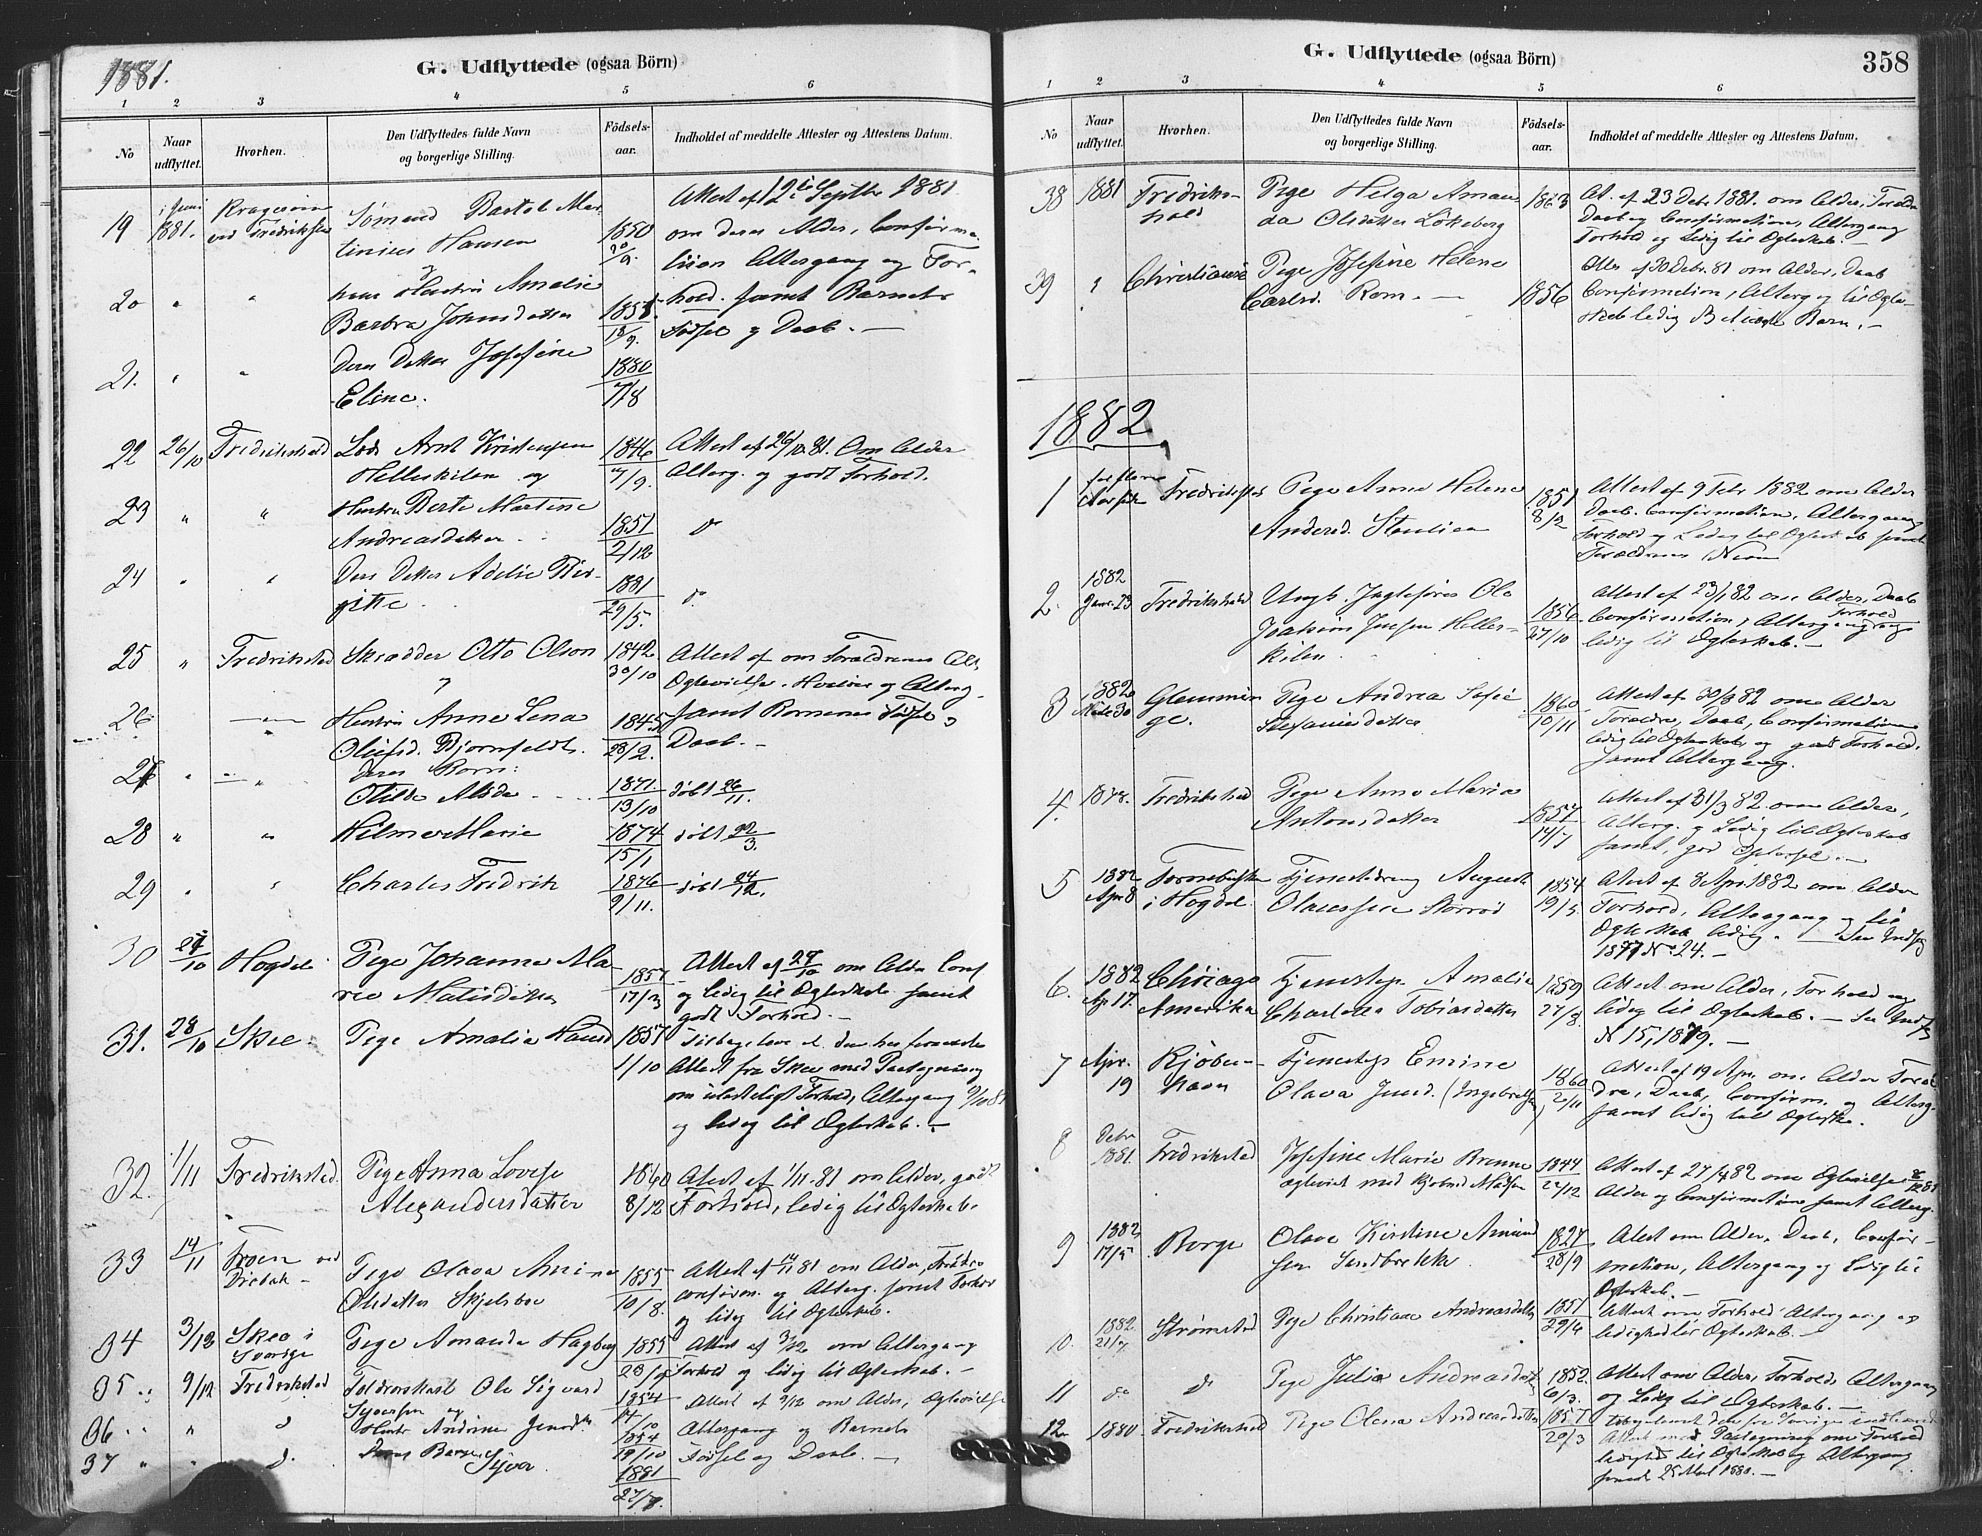 1881.
G. Udflyttede (ogsaa Börn)
1 2 3 4 5 6
No
Naar udflyttet.
Hvorhen.
Den Udflyttedes fulde Navn og borgerlige Stilling.
Födsels-aar.
Indholdet af meddelte Attester og Attestens Datum.
19 i Juni 1881. ved Fredrikstad Sømand Bartol Mar-
tinius Hansen 1850
Attest af 12te Septbr 1881
om deres Alder, Confirma-
tion Altergang og For-
20 " " hans Hustru Amalie
Barbra Johnsdatter 18/9
hold. samt Barnets
Fødsel og Daab. —
21. " " Deres Datter Josefine
Eline. 1880 7/8
22 26/10 Fredrikshald Lods Arnt Kristensen
Helleskilen og 1846 7/9.
Attest af 26/10 81. Om Alder
Alterg. og godt Forhold.
23 " " Hustru Berte Martine
Andreasdatter 1851 2/12 do
24 " " Deres Datter Adelse Bir-
gitte. 1881 29/5. do.
25 " Fredrikstad Skrædder Otto Olson 1842 30/10
Attest af om Forældrenes Al.
Ægtevielse. og Alterg.
26 Hustru Anne Lena
Olufsd. Bjornfeldt. 1845 28/2.
samt Børnenes Fødsel og
Daab. —
27 " deres Børn:
Otilde Alida 1871. 13/10 døbt 26/11.
28 " " Hilma Marie 1874 15/1 døbt 22/3.
29 " " Charles Fredrik 1876 9/11. døbt 24/12.
30 27/10 Hogdal Pige Johanne Ma-
rie Matisdatter 1857 17/3
Attest af 27/10 om Alder Conf
og ledig til Ægteskab samt
godt Forhold. —
31. 28/10 Skee. Pige Amalia Hansd 1857 1/10
Attest fra Skee med Paategning
om ulasteligt Forhold, Altergang 9/10 81
og ledig til Ægteskab. —
32. 1/11 Fredrikstad. Pige Anna Lovise
Alexandersdatter 1860 8/12
Attest af 1/11 81 om Alder, godt
Forhold, ledig til Ægteskab.
33 14/11 ved Pige Olava Amina
Olsdatter Skjelsboe 1855 10/8.
Attest af 14/11 81 om Alder,
confirm. og Alterg. samt Forhold
og ledig til Ægteskab.
34 3/12 Skee i
Sverige Pige Amanda Hagberg 1855
Attest af 3/12 om Altergang
Forhold og ledig til Ægteskab. —
35 " 9/12 Fredrikstad Ole Sigvard
Syversen og 1854 14/10
Attest af 9/12 om Alder, Ægtevielse
36 " " do Hustr Andrine Jensd. 1854 19/10
Altergang og Barnets
37 " " do. deres Barn Syver 1881
Fødsel og Daab. —
G. Udflyttede (ogsaa Börn)
358
1 2 3 4 5 6
No
Naar udflyttet.
Hvorhen.
Den Udflyttedes fulde Navn og borgerlige Stilling.
Födsels-aar.
Indholdet af meddelte Attester og Attestens Datum.
38 1881 Fredriks-
hald Pige Helga Aman-
da Olsdatter Løkeberg 1863
At. af 23 Debr 1881. om Alder, Foræld
Daab og Confirmation, Altergang
Forhold og Ledig til Ægteskab. —
39 " Christiania Pige Josefine Helene
Carlsd. Rom. — 1856
Att. af 30 Debr. 81 om Alder, Daab
Confirmation, Alterg og til Ægte-
skab ledig Barn. —
1882
1 Fredrikstad Pige Anne Helene
Andersd. 1851 8/2
Attest af 9 Febr 1882 om Alder
Daab. Confirmation, Altergang
Forhold og Ledig til Ægteskab samt
Forældrenes Navn
2. 1882
Janr. 23 Fredrikshald Ungk. Ole
Joakim Jensen Helles-
kilen 1856 27/10
Attest af 23/1 82 om Alder, Daab
Confirmation, Altergang Forhold
ledig til Ægteskab. —
3 1882
30 Glemmin
ge. Pige Andrea Sofie
Stefaniedatter 1860 10/11
Attest af 30/3 82 om Alder
Forældre, Daab, Confirmation
ledig til Ægteskab og godt Forhold.
samt Altergang.
4. 1878. Fredrikshald Pige Anne Maria
Antonsdatter 1857 14/7
Attest af 31/3 82 om Alder,
Alterg. og Ledig til Ægteskab
samt, god Opførsel. —
5 1882
Apr 8 i Hogdal. Tjenestedreng August
Olaussen 1854 19/5
Attest af 8 April 1882 om Alder
Forhold, Altergang og til
Ægteskab ledig. — See Indfl
1877 No 24. —
6. 1882
Ap 17. Chicago
Amerika Tjenestep. Amalia
Charlotta Tobiasdatter 1859 27/8.
Attest om Alder, Forhold og
ledig til Ægteskab. — See Indfl
N 15, 1879. —
7 Apr.
19 Kjøben-
havn Tjenestep. Emine
Olava Jensd. (Ingebretsen) 1860 20/11
Attest af 19 Apr. om Alder Foræl
dre, Daab, Confirm. og Alterg.
samt ledig till Ægteske.
8 Debr
1881. Fredrikstad Josefine Marie Brenne
ægteviet med Madsen 1844 24/12
Attest af 27/4 82 om Ægtevielse
Alder og Confirmation samt Alterg.
9 1882
17/5 Borge Olava Kirstine Amund
sen Sandbrekke. 1827 28/9
Attest om Alder, Daab, Confir-
mation, Altergang og Ledig til
Ægteskab. —
10. 1882
21/7 Strømstad Pige Christiane Andreasdatter 1851 29/6
Attest om Forhold Altergang og
ledighed til Ægteskab. —
11 do do Pige Julia Andreasdat 1852. 6/3.
Attest om Alder, Forhold, Altergang
og Ledig til Ægteskab. —
12 1880 Fredrikstad Pige Olena Andreasdatter 1857 20/3
Attest med Paategning om Forhold
ledighed til Ægteskab og Altergang
25 Mai 1880. —